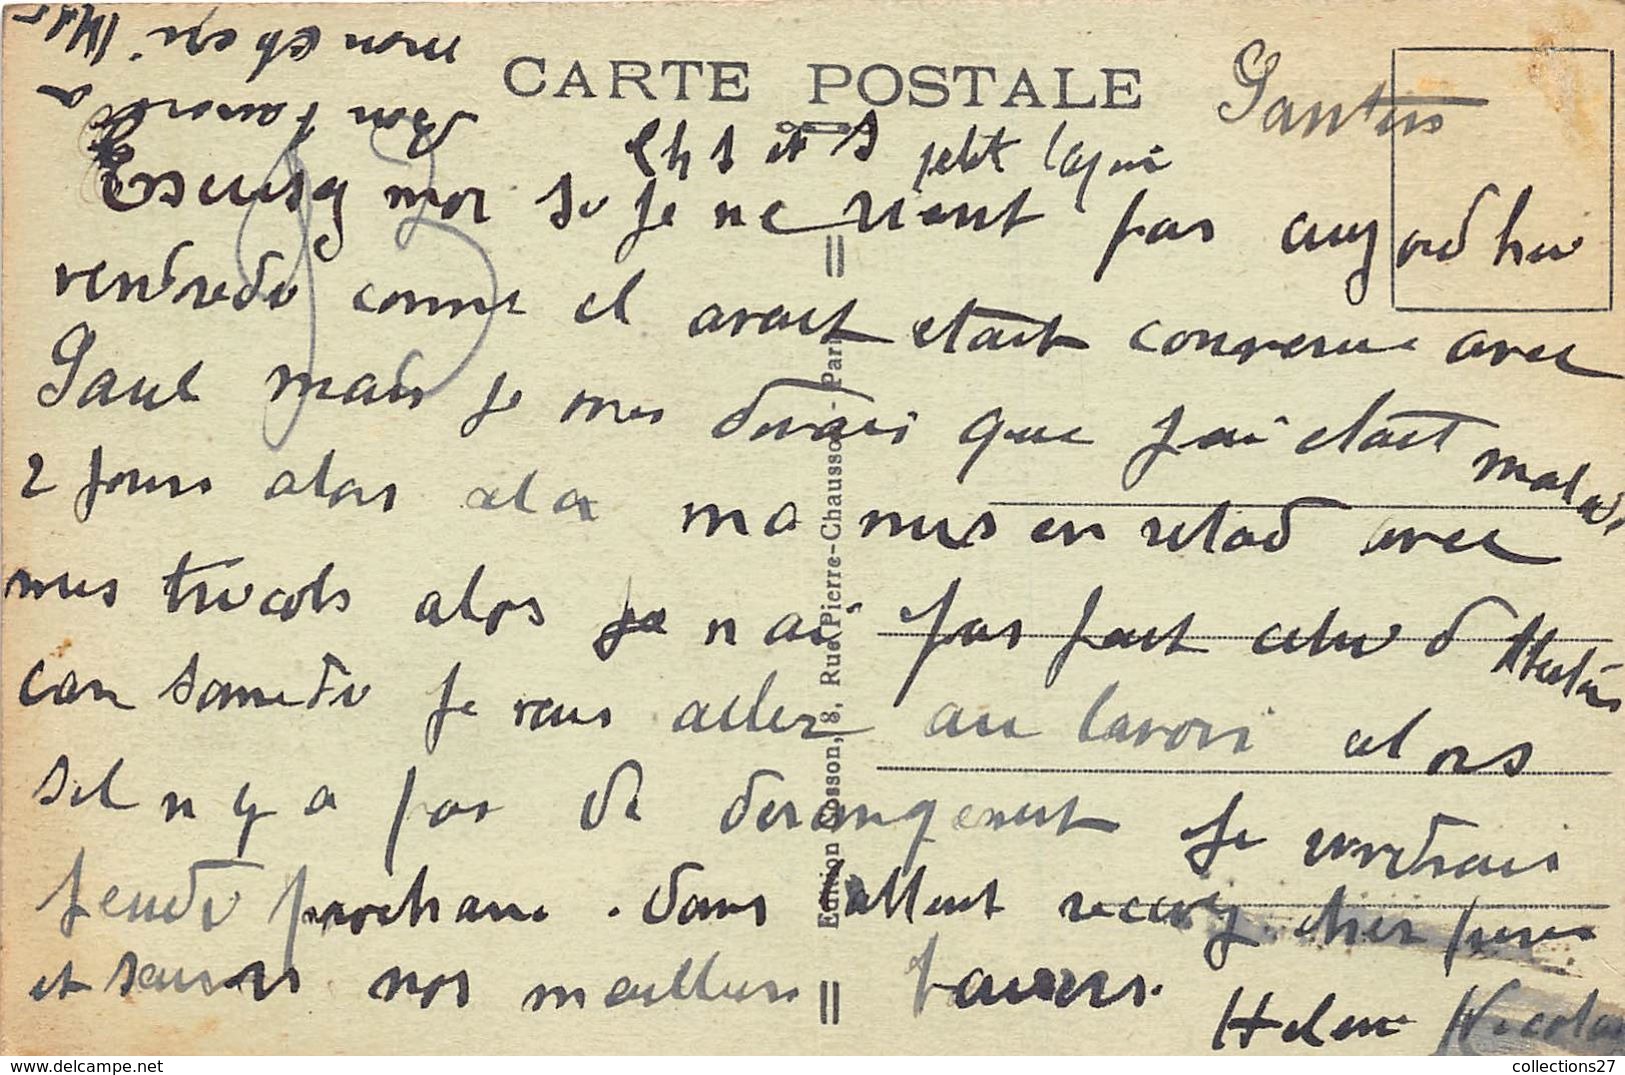 CARTE POSTALE
Pantin
mon cheri
Bon baiser a
Ch s et S petit
Escusey moi si je ne vient pas aujourdhui
vendredi comme il avait etait convenue avec
Paul mais je mes dirais que jai etait malade
2 jours alors ela ma mis en retad avec
mes tricots alors je nai pas fait celui d
car samedi je vais aller au lavoir alors
sil n y a pas de derangement je viendrais
jeudi prochane. dans lattent recevez chers freres
et seurs nos meilleurs baisers.
Helene Nicolas
Edition Rosson, 8, Rue Pierre-Chausson - Paris
collections27